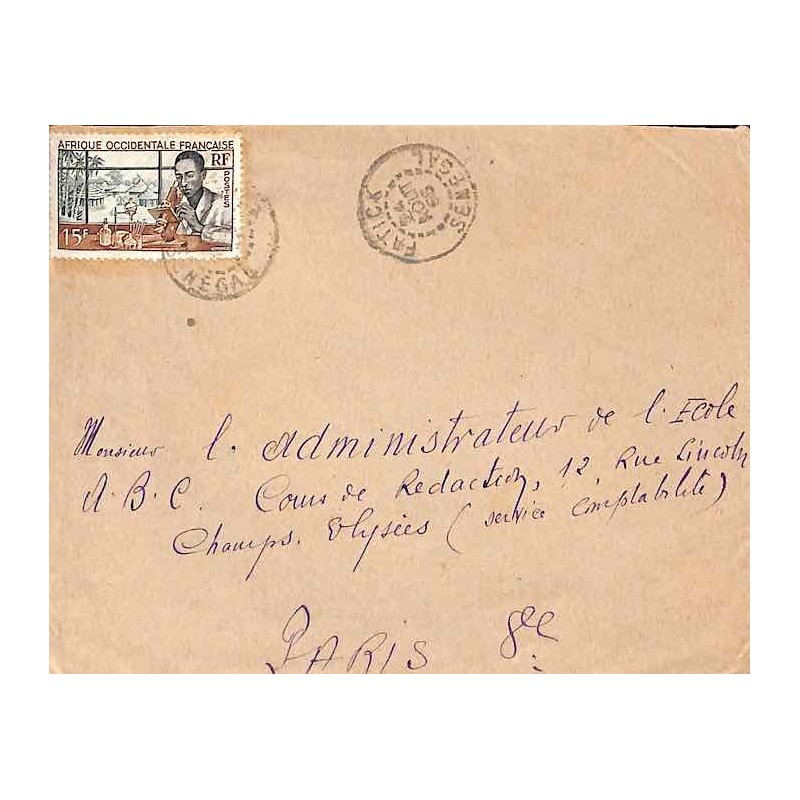 AFRIQUE OCCIDENTALE FRANÇAISE
RF
POSTES
15F
NEGAL
FATICK
AOUT
SÉNÉGAL
Monsieur l. Administrateur de l. Ecole
A. B. C. Cours de Redaction, 12, Rue Lincoln
Champs. Elysées ( service comptabilité )
PARIS 8ee